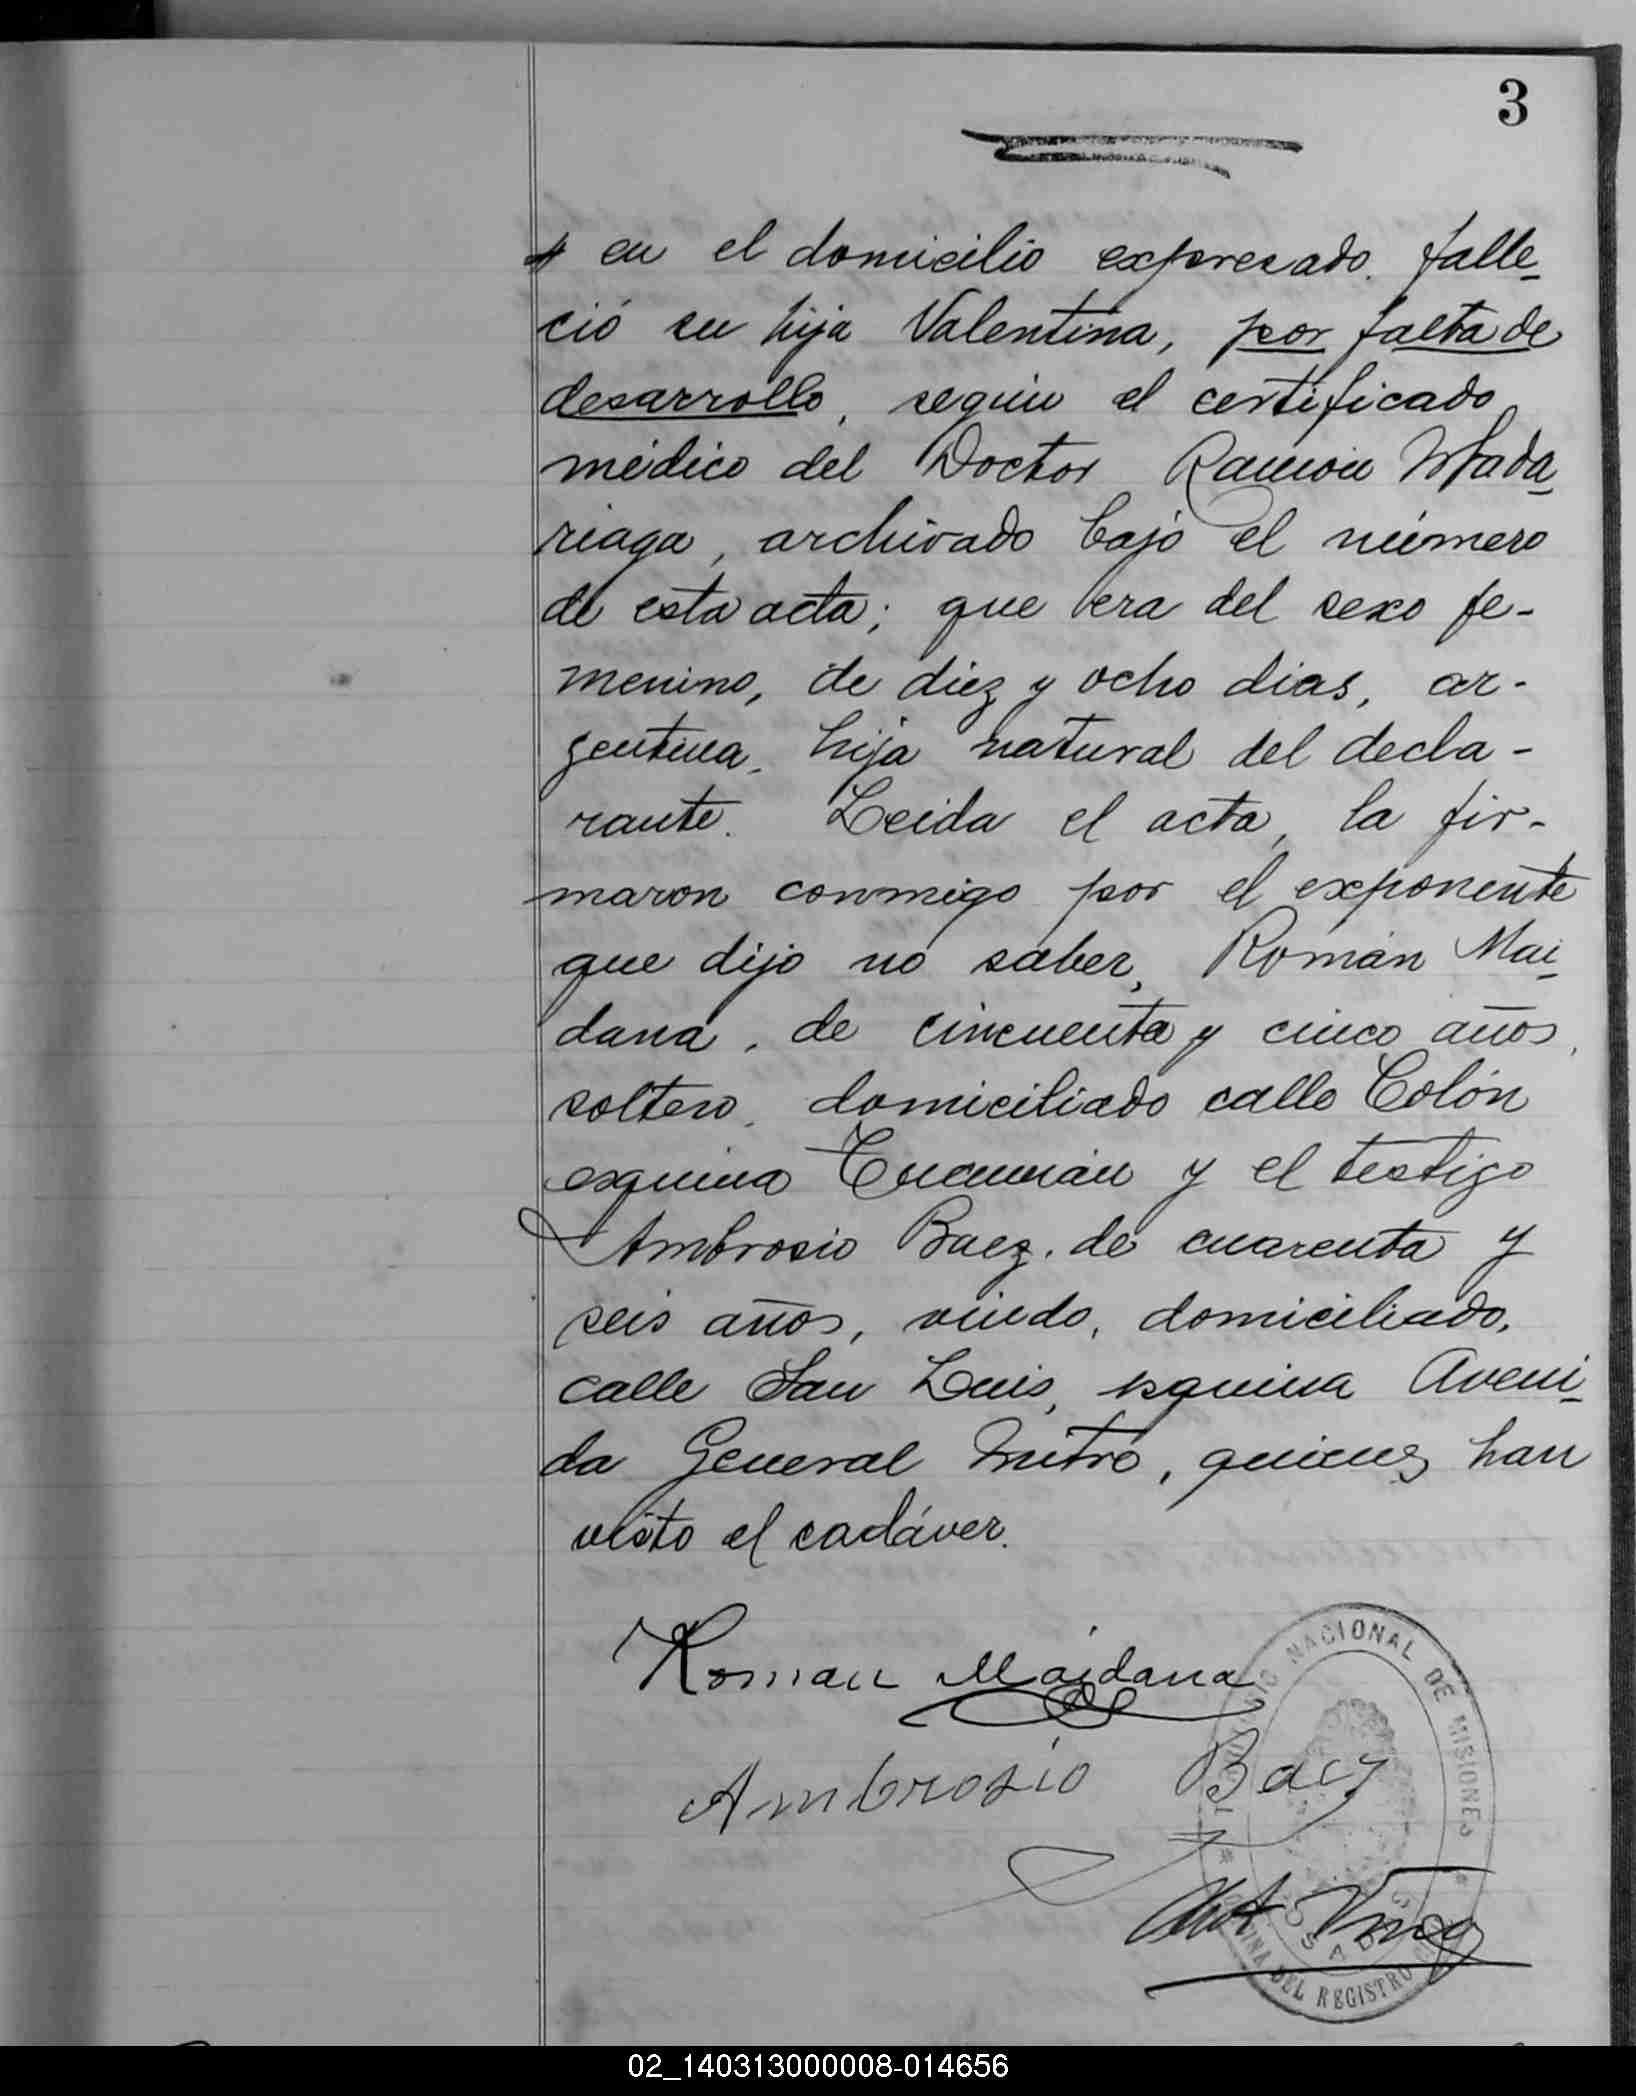 3
y en el domicilio expresado, falle-
ció su hija Valentina, por falta de
desarrollo, según el certificado
médico del Doctor Ramón Mada-
riaga, archivado bajo el número
de esta acta; que era del sexo fe-
menino, de diez y ocho dias, ar-
gentina, hija natural del decla-
rante. Leida el acta, la fir-
maron conmigo por el exponente
que dijo no saber, Román Mai-
dana, de cincuenta y cinco años,
soltero, domiciliado calle Colón
esquina Tucumán y el testigo
Ambrosio Baez, de cuarenta y
seis años, viudo, domiciliado,
calle San Luis, esquina Aveni-
da General Mitre, quienes han
visto el cadáver.
Roman Maidana
Ambrosio Baez
NACIONAL DE MISIONES
DEL REGISTRO
02_140313000008-014656